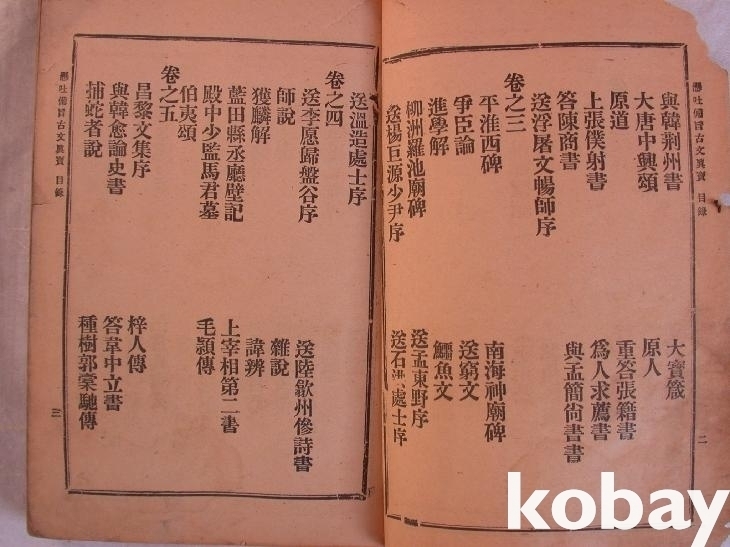 懸吐備旨古文眞寶 目錄 二
與韓荆州書
大寶箴
大唐中興頌
原人
原道
重答張籍書
上張僕射書
爲人求薦書
答陳商書
與孟簡尙書書
送浮屠文暢師序
卷之三
平淮西碑
南海神廟碑
爭臣論
送窮文
進學解
鱷魚文
柳洲羅池廟碑
送孟東野序
送楊巨源少尹序
送石洪處士序
送溫造處士序
卷之四
送李愿歸盤谷序
送陸歙州傪詩書
師說
雜說
獲麟解
諱辨
藍田縣丞廳壁記
上宰相第二書
殿中少監馬君墓
毛頴傳
伯夷頌
卷之五
昌黎文集序
梓人傳
與韓愈論史書
答韋中立書
捕蛇者說
種樹郭橐駝傳
懸吐備旨古文眞寶 目錄 三
kobay